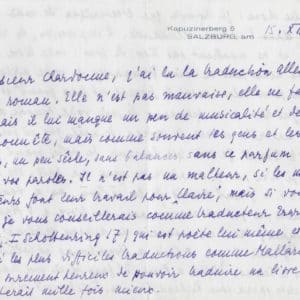 Kapuzinerberg 5
SALZBURG, am 15. XI
sieur Chardonne, j'ai lu la traduction alle
roman. Elle n'est pas mauvaise, elle ne fa
ais il lui manque un peu de musicalité et de
onnête, mais comme souvent les gens et les
, un peu sèche, sans balances, sans ce parfum
vos paroles. Il n'est pas un malheur, si les
font leur travail pour mais si vo
je vous conseillerais comme traducteur
, I Schottenring 17) qui est poète lui même et
i les plus difficiles traductions comme Mallar
urement heureux de pouvoir traduire un livre
terait mille fois mieux.